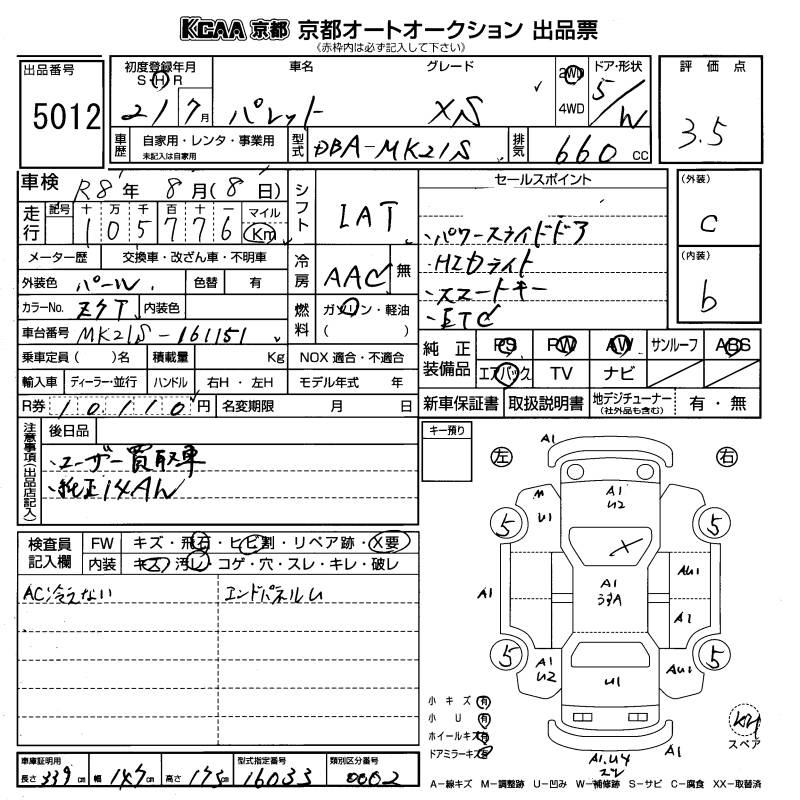 KCAA 京都 京都オートオークション 出品票
(赤枠内は必ず記入して下さい)
出品番号
5012
初度登録年月
S H R
21 7 月
車名
パレット
グレード
XS
2WD
4WD
ドア・形状
5/W
評価点
3.5
車歴
自家用・レンタ・事業用
未記入は自家用
型式
DBA-MK21S
排気
660 CC
車検 R8年 8月(8日)
シフト
IAT
セールスポイント
・パワースライドドア
・HIDライト
・スマートキー
・ETC
(外装)
C
(内装)
b
走行
記号 十 万 千 百 十 一 マイル
105776 Km
メーター歴 交換車・改ざん車・不明車
冷房
AAC 無
外装色 パール 色替 有
カラーNo. Z7T 内装色
燃料
ガソリン・軽油
( )
車台番号 MK21S-161151
乗車定員( )名 積載量 Kg NOX 適合・不適合
輸入車 ディーラー・並行 ハンドル 右H・左H モデル年式 年
R券 10,110円 名変期限 月 日
純正装備品
PS PW AW サンルーフ ABS
エアバック TV ナビ
新車保証書 取扱説明書 地デジチューナー (社外品も含む) 有・無
注意事項(出品店記入)
後日品
・ユーザー買取車
・純正14AW
キー預り
左 右
検査員記入欄
FW キズ・飛石・ヒビ割・リペア跡・X要
内装 キズ・汚レ・コゲ・穴・スレ・キレ・破レ
AC冷えない エンドパネルU
A1
A1
U2
U1
5 5
X
A1
A1
うすA
AU1
A1
5 5
A1
U2
U1
AU1
A1
A1
A1.U4
小キズ 有
小U 有
ホイールキズ 有
ドアミラーキズ 有
スペア
車庫証明用
長さ 339 cm 幅 147 cm 高さ 175 cm
型式指定番号
16033
類別区分番号
0002
A―線キズ M―調整跡 U―凹み W―補修跡 S―サビ C―腐食 XX―取替済